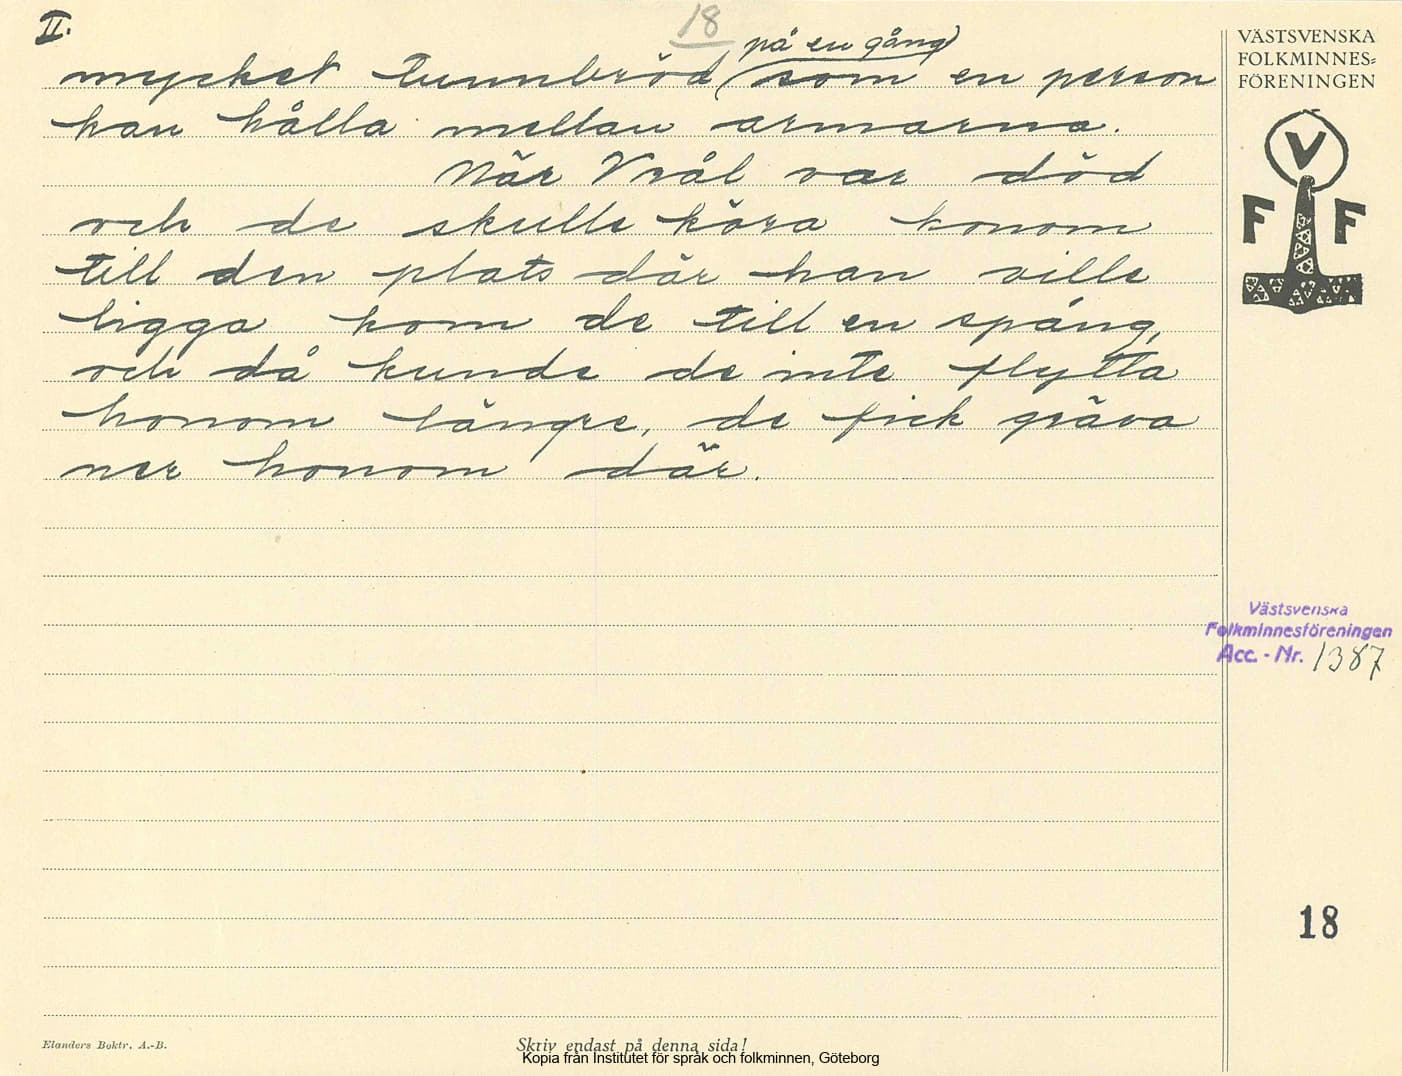 II.
18
på en gång
mycket tunnbröd som en person
kan hålla mellan armarna.
När Vrål var död
och de skulle köra honom
till den plats där han ville
ligga kom de till en spång,
och då kunde de inte flytta
honom längre, de fick gräva
ner honom där.
VÄSTSVENSKA
FOLKMINNES=
FÖRENINGEN
V
F F
Västsvenska
Folkminnesföreningen
Acc. - Nr. 1387
18
Elanders Boktr. A.-B.
Skriv endast på denna sida!
Kopia från Institutet för språk och folkminnen, Göteborg